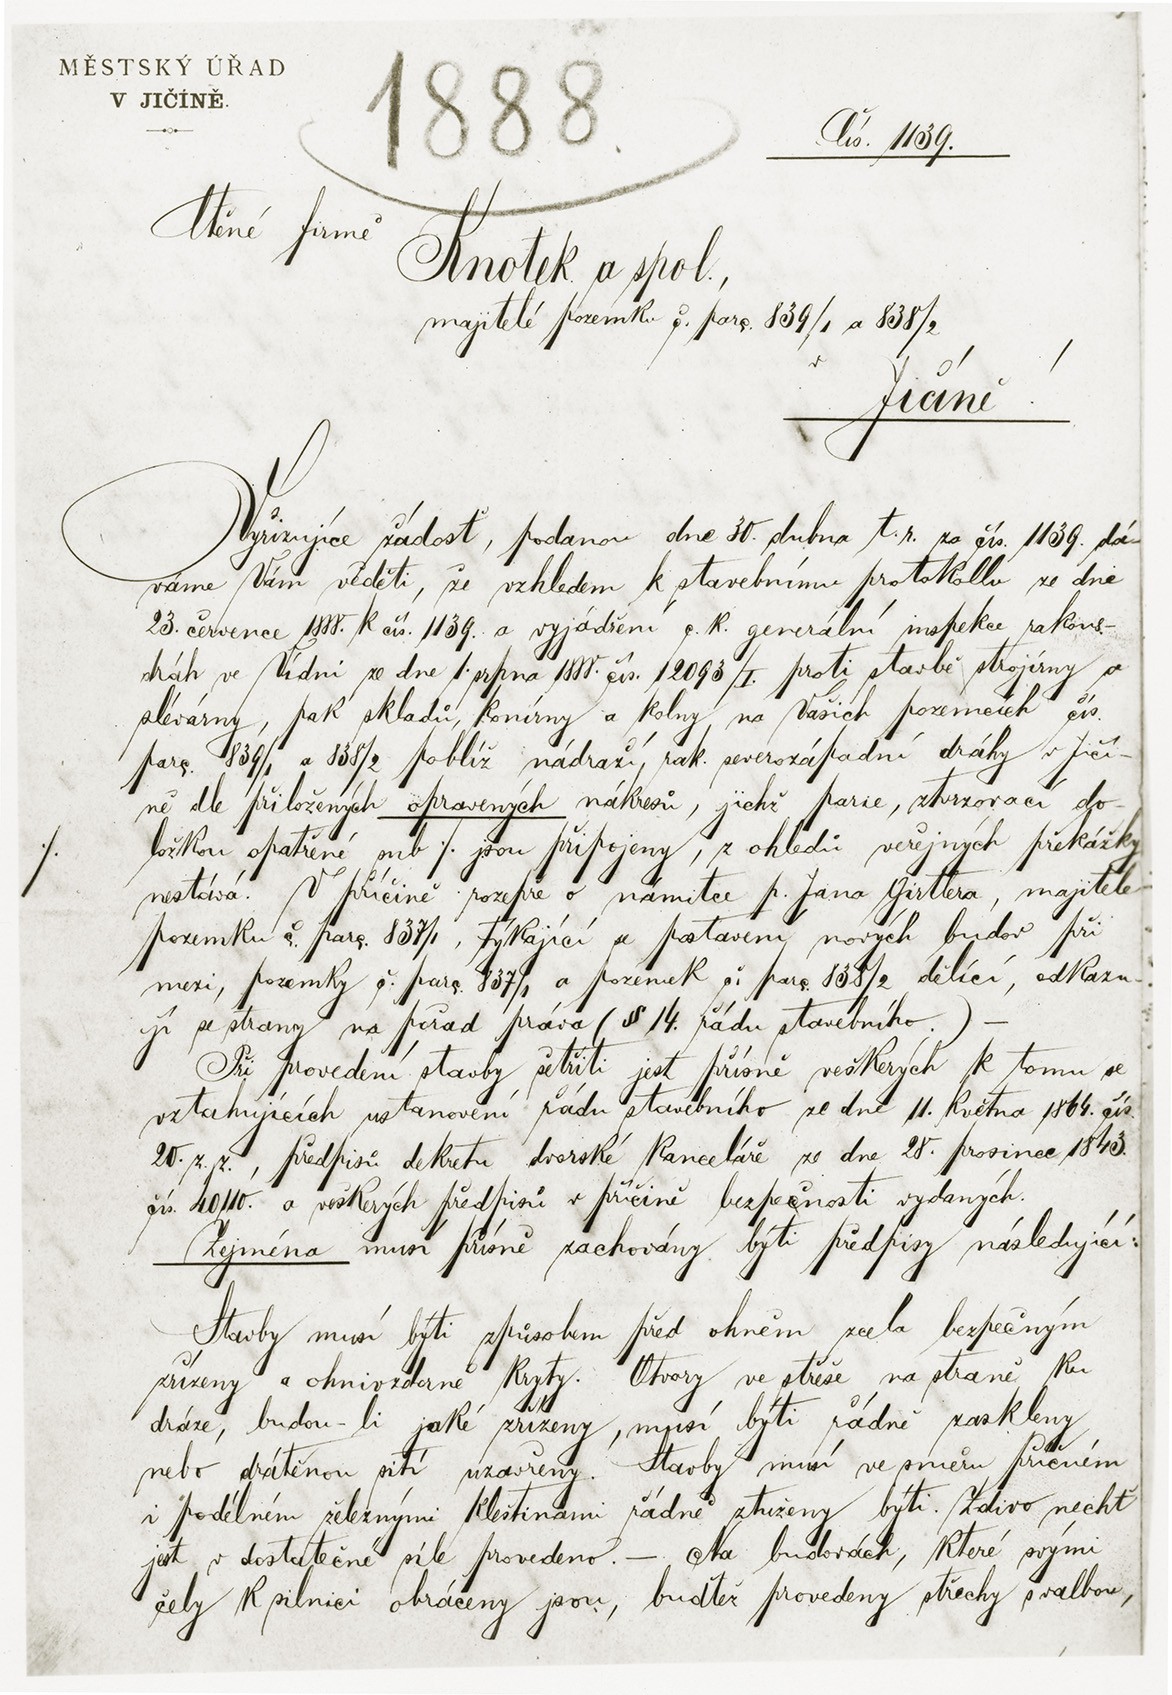 MĚSTSKÝ ÚŘAD
V JIČÍNĚ.
1888.
Čís. 1139.
Ctěné firmě
Knotek a spol.,
majitelé pozemku č. parc. 839/1 a 838/2
v
Jičíně!
Vyřizujíce žádosť, podanou dne 30. dubna t. r. za čís. 1139. dá-
váme Vám věděti, že vzhledem k stavebnímu protokollu ze dne
23. července 1888. k čís. 1139. a vyjádření c. k. generální inspekce rakous.
dráh ve Vídni ze dne 1. srpna 1888. čís. 12093/I. proti stavbě strojírny a
slévárny, pak skladů, konírny a kolny na Vašich pozemcích čís.
parc. 839/1 a 838/2 poblíž nádraží rak. severozápadní dráhy v Jičí-
ně dle přiložených opravených nákresů, jichž parie, ztvrzovací do-
ložkou opatřené sub ·/. jsou připojeny, z ohledů veřejných překážky
·/.
nestává. V příčině rozepře o námitce p. Jana Girttera, majitele
pozemku č. parc. 837/1, týkající se postavení nových budov při
mezi, pozemky č. parc. 837/1 a pozemek č. parc. 838/2 dělící, odkazu-
jí se strany na pořad práva (§ 14. řádu stavebního.) —
Při provedení stavby šetřiti jest přísně veškerých k tomu se
vztahujících ustanovení řádu stavebního ze dne 11. května 1864. čís.
20. z. z., předpisů dekretu dvorské kanceláře ze dne 28. prosince 1843.
čís. 40110. a veškerých předpisů v příčině bezpečnosti vydaných.
Zejména musí přísně zachovány býti předpisy následující:
Stavby musí býti způsobem před ohněm zcela bezpečným
zřízeny a ohnivzdorně kryty. Otvory ve střeše na straně ku
dráze, budou-li jaké zřízeny, musí býti řádně zaskleny
nebo drátěnou sítí uzavřeny. Stavby musí ve směru příčném
i podélném železnými kleštinami řádně ztuženy býti. Zdivo nechť
jest v dostatečné síle provedeno. — Na budovách, které svými
čely k silnici obráceny jsou, buďtež provedeny střechy s valbou,